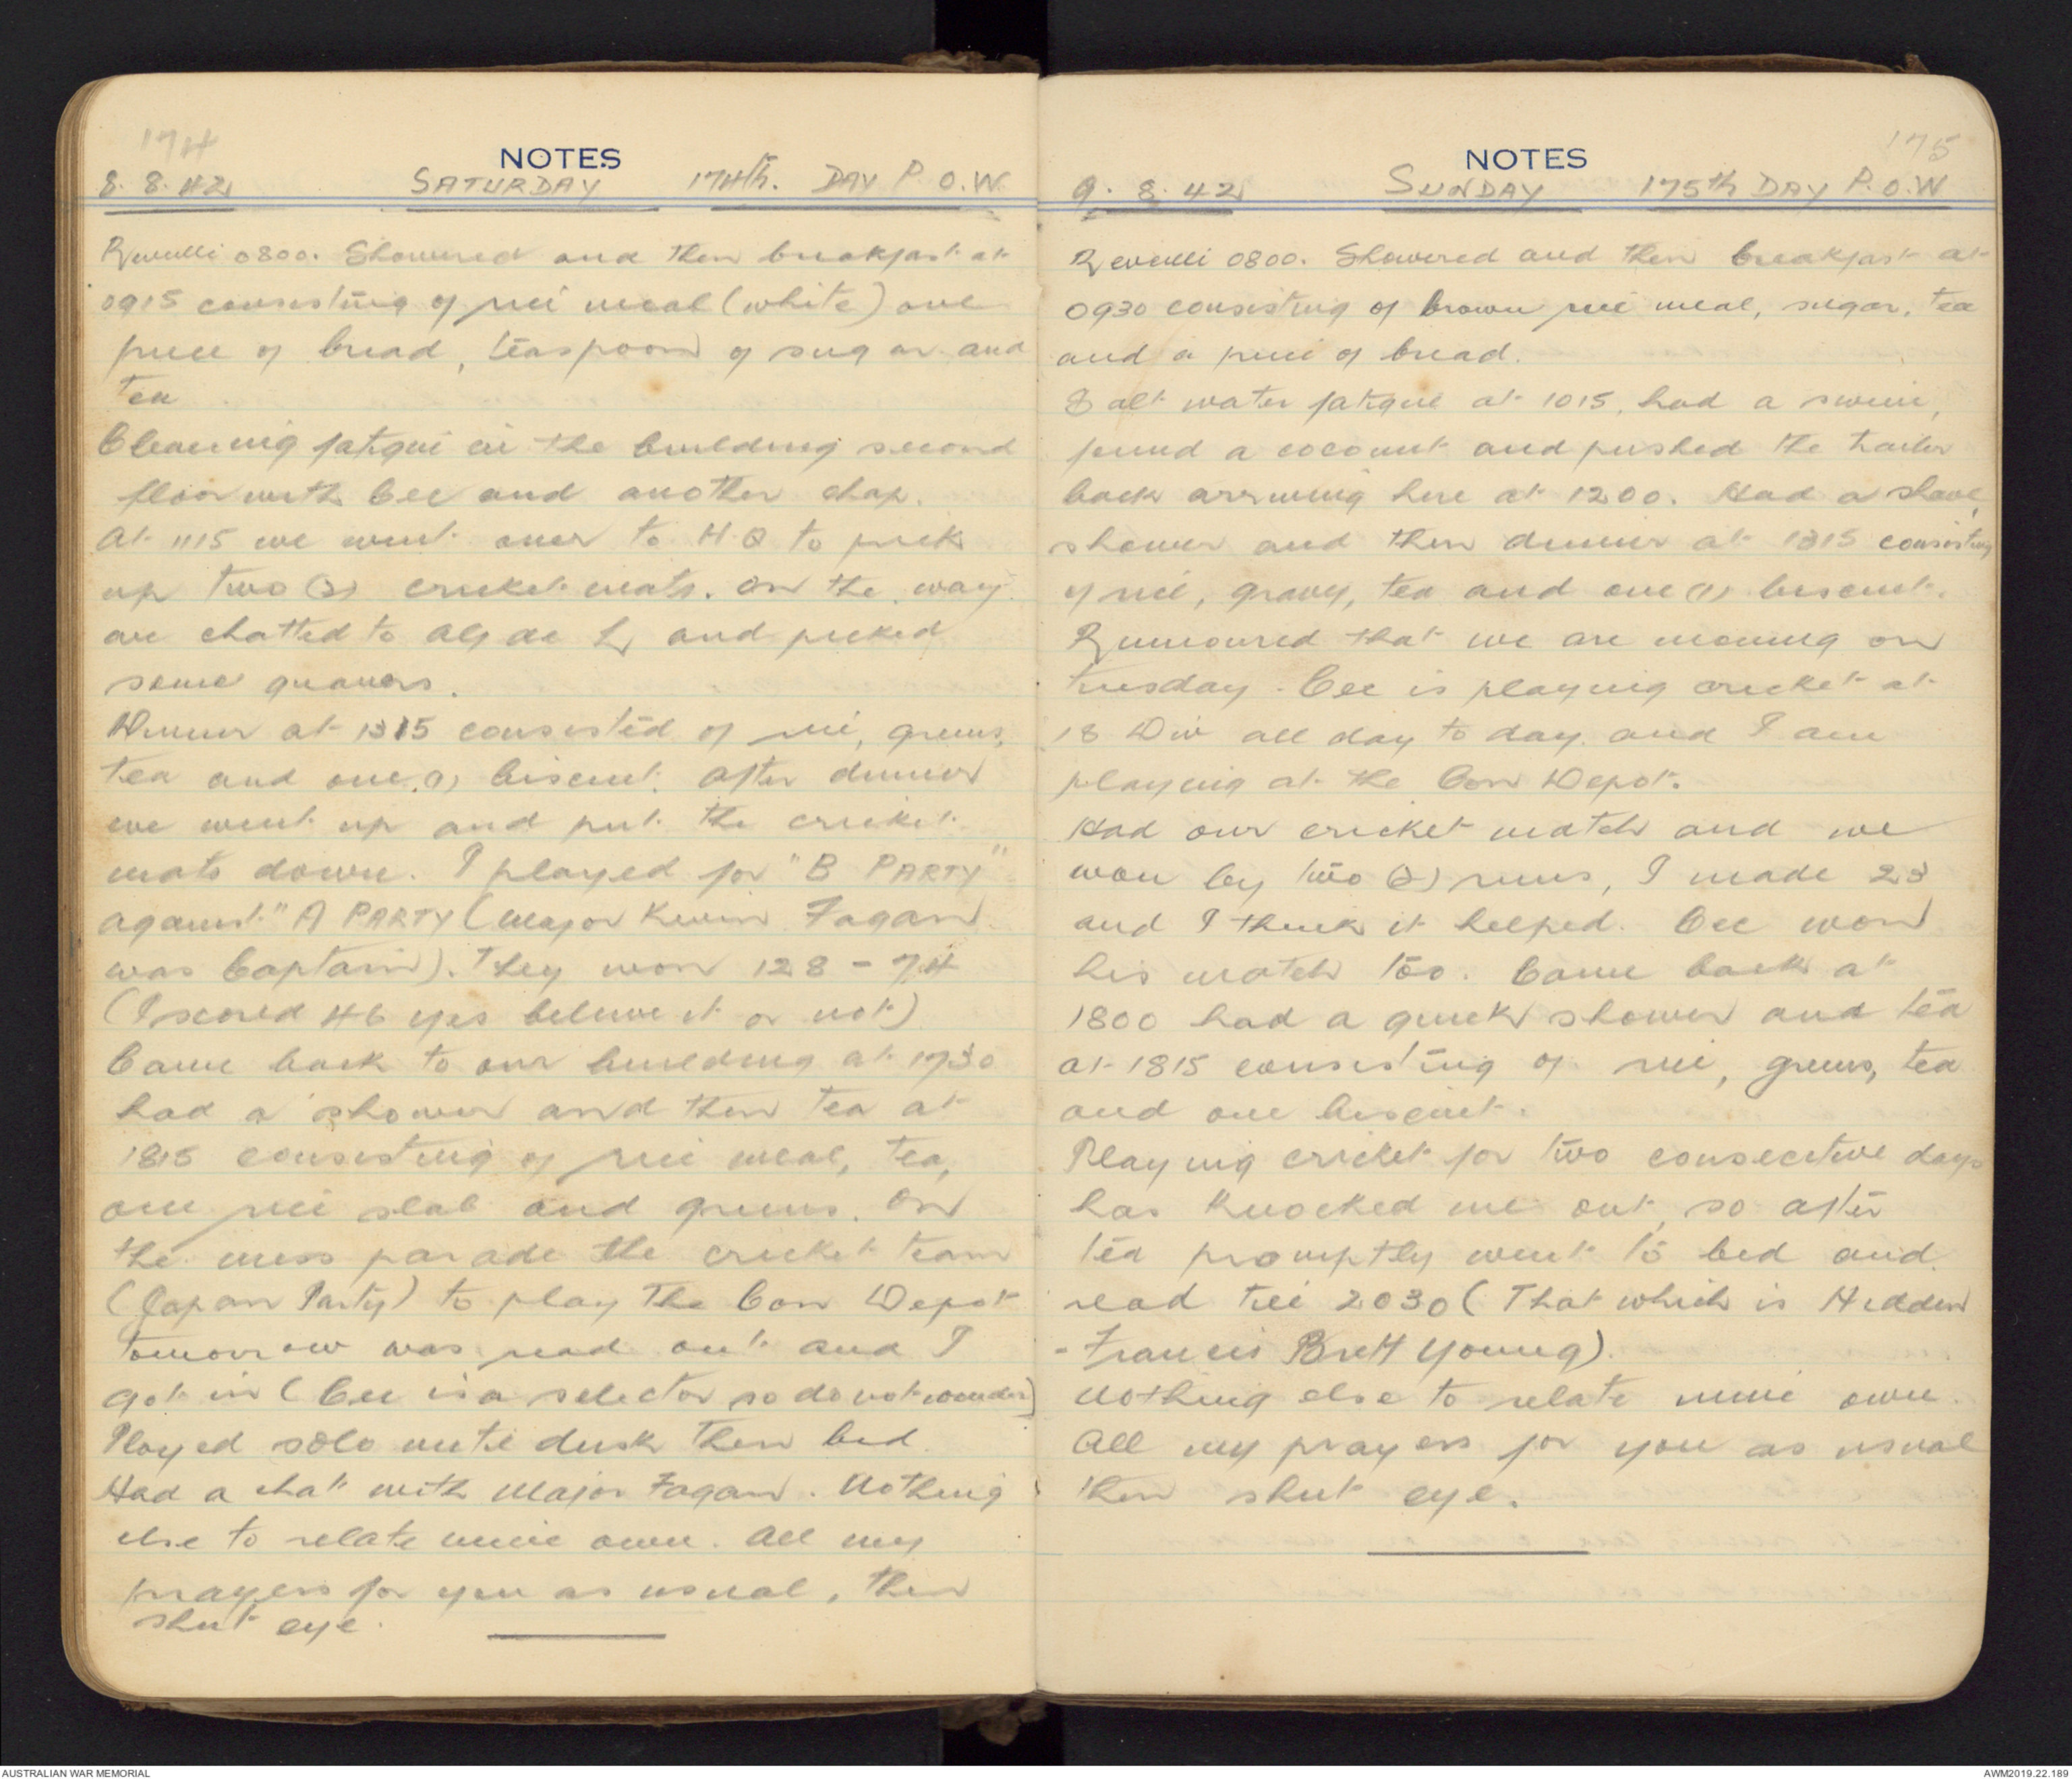 174
NOTES
8. 8. 42 SATURDAY 174th. DAY P.O.W.
Reveille 0800. Showered and then breakfast at
0915 consisting of rice meal (white) one
piece of bread, teaspoon of sugar and
tea
Cleaning fatigue in the building second
floor with Cec and another chap.
At 1115 we went over to H.Q to pick
up two (2) cricket mats. On the way
we chatted to and picked
some guavers.
Dinner at 1315 consisted of rice, greens,
tea and one (1) biscuit. After dinner
we went up and put the cricket
mats down. I played for "B PARTY"
against "A PARTY (Major Kevin Fagan
was Captain). They won 128 - 74
(I scored 46 yes believe it or not)
Came back to our building at 1730
had a shower and then tea at
1815 consisting of rice meal, tea,
one rice slab and greens. On
the mess parade the cricket team
(Japan Party) to play The Con Depot
tomorrow was read out and I
got in (Cec is a selector so do not wonder)
Played solo until dusk then bed.
Had a chat with Major Fagan. Nothing
else to relate mine own. All my
prayers for you as usual, then
shut eye.
175
NOTES
9. 8. 42 SUNDAY 175th DAY P.O.W
Reveille 0800. Showered and then breakfast at
0930 consisting of brown rice meal, sugar, tea
and a piece of bread.
Salt water fatigue at 1015, had a swim,
found a coconut and pushed the trailer
back arriving here at 1200. Had a shave,
shower and then dinner at 1315 consisting
of rice, gravy, tea and one (1) biscuit.
Rumoured that we are moving on
Tuesday. Cec is playing cricket at
18 Div all day to day and I am
playing at the Con Depot.
Had our cricket match and we
won by two (2) runs, I made 23
and I think it helped. Cec won
his match too. Came back at
1800 had a quick shower and tea
at 1815 consisting of rice, greens, tea
and one biscuit.
Playing cricket for two consecutive days
has knocked me out so after
tea promptly went to bed and
read till 2030 (That which is Hidden
- Francis Brett Young).
Nothing else to relate mine own.
All my prayers for you as usual
then shut eye.
AUSTRALIAN WAR MEMORIAL
AWM2019.22.189